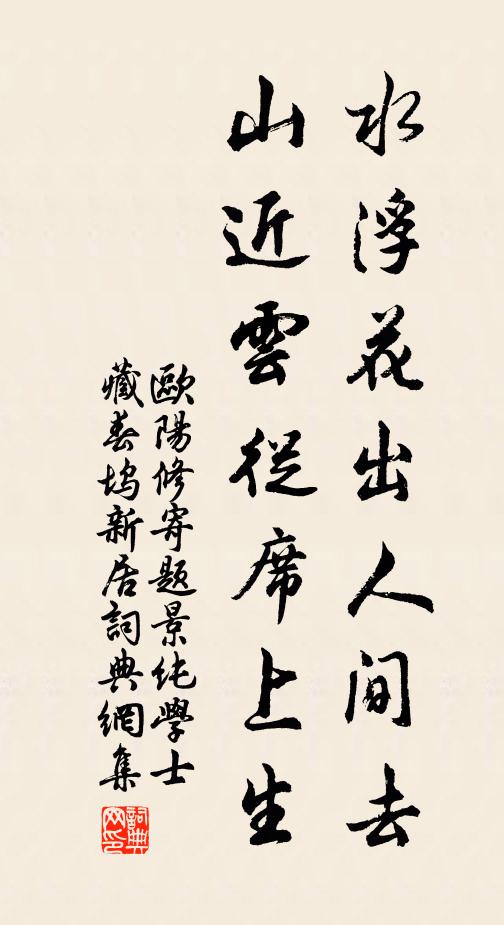 水浮花出人間去
山近雲從席上生
歐陽修寄題景純學士
藏春塢新居詞典網集
詞典
网印